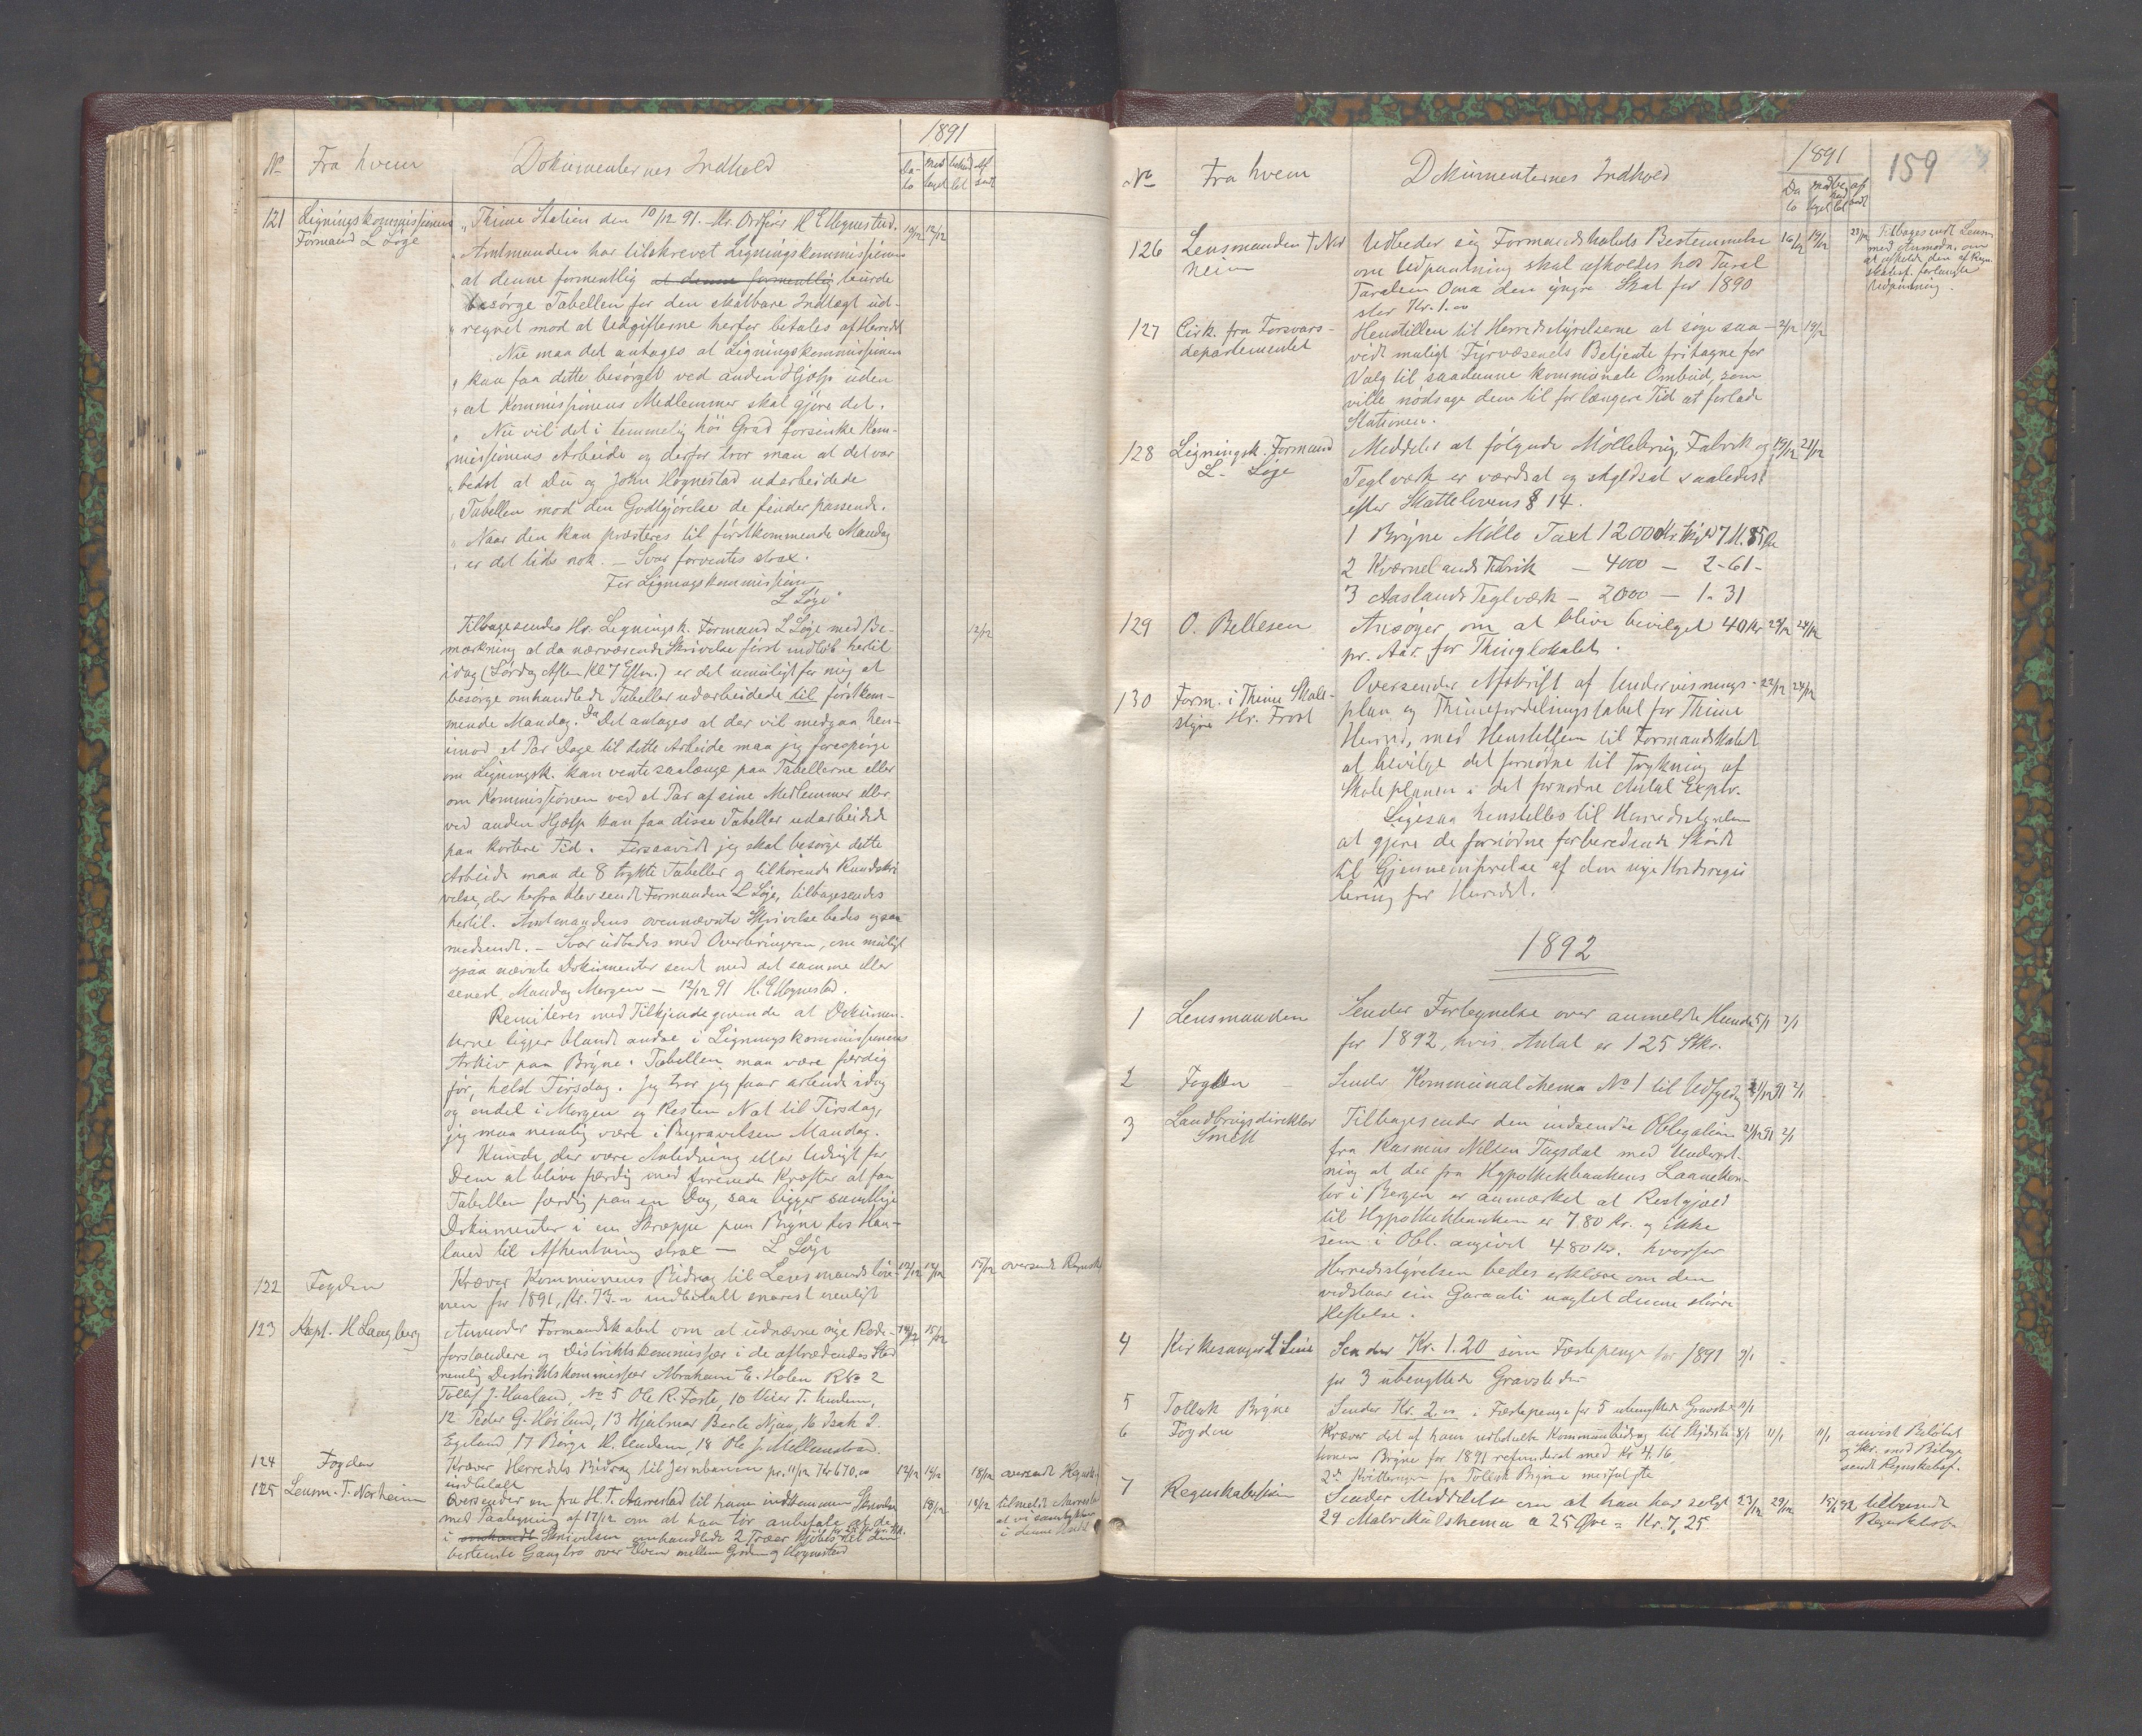 1891
No Fra hvem Dokumenternes Indhold Da- to
121 Ligningskommissionens Formand L Löge
"Thime Station den 10/12 91. Hr. Ordförer H E Høgnestad. 10/12 12/12
"Amtmanden har tilskrevet Ligningskommissionen
at denne formentlig at denne formentlig burde
besörge Tabellen for den skatbare Indtægt ud-
regnet mod at Udgifterne herfor betales af Herredet
Nu maa det antages at Ligningskommissionen
" kan faa dette besørget ved anden Hjælp uden
" at Kommissionens Medlemmer skal gjøre det.
" Nu vil det i temmelig höi Grad forsinke Kom-
missionens Arbeide og derfor tror man at det var
" bedst at Du og John Høgnestad udarbeidede
" Tabellen mod den Godtgjörelse de finder passende.
" Naar den kan præsteres til förstkommende Mandag
" er det tids nok. – Svar forventes strax.
For Ligningskommissionen
L Löge"
Tilbagesendes Hr. Lignings k. Formand L Löge med Be- 12/12
mærkning at da nærværende Skrivelse först indlöb hertil
idag (Lördag Aften Kl 7 Eftm.) er det umuligt for mig at
besörge omhandlede Tabeller udarbeidede til förstkom-
mende Mandag. Da Det antages at der vil medgaa hen-
imod et Par Dage til dette Arbeide maa jeg forespörge
om Ligningsk. kan vente saalænge paa Tabellerne eller
om Kommissionen ved et Par af sine Medlemmer eller
ved anden Hjælp kan faa disse Tabeller udarbeidede
paa kortere Tid. Forsaavidt jeg skal besörge dette
Arbeide maa de 8 trykte Tabeller og tilhörende Rundskri
velse, der herfra blev sendt Formanden L Löge, tilbagesendes
hertil. Amtmandens ovennævnte Skrivelse bedes ogsaa
medsendt. – Svar udbedes med Overbringeren, om muligt
ogsaa nævnte Dokumenter sendt med det samme eller
senest Mandag Morgen – 12/12 91 H. E Høgnestad.
Remiteres med Tilkjendegivende at Dokumen-
terne ligger blandt andre i Ligningskommissionens
Arkiv paa Bryne. Tabellen maa være færdig
för, helst Tirsdag. Jeg tror jeg faar arbeide idag
og endel i Morgen og Resten Nat til Tirsdag,
jeg maa nemlig være i Begravelsen Mandag.
Kunde der være Anledning eller Udsigt for
Dem at blive færdig med forenede Kræfter at faa
Tabellen færdig paa en Dag, saa ligger samtlige
Dokumenter i en Skræppe paa Bryne hos Hau-
land til Afhentning strax – L Löge
122 Fogden Kræver Kommunens Bidrag til Lensmandslön- 12/12 14/12 15/12 oversendt Regnsk.
nen for 1891, Kr. 73.– indbetalt snarest muligt
123 Kapt. H Langberg Anmoder Formandskabet om at udnævne nye Rode- 14/12 15/12
forstandere og Distriktskommissær i de aftrædendes Sted
nemlig Distriktskommissær Abraham E. Holen R No 2
Tollef J. Haaland, No 5 Ole R. Fosse, 10 T. Undem,
12 Peder G. Höiland, 13 Hjalmar Berle Njaa, 16 Isak I.
Egeland, 17 Börge K. Undem, 18 Ole J. Mellemstrand.
124 Fogden Kræver Herredets Bidrag til Jernbanen pr. 11/12 Kr 670.00 12/12 14/12 18/12 oversendt Regnsk.
indbetalt
125 Lensm. T. Norheim Oversender en fra H. T. Aarrestad til ham indkommen Skrivelse 18/12 18/12 tilmeldt Aarrestad
med Paategning af 17/12 om at han tör anbefale at de at vi samtykker
i Skrivelsen omhandlede 2 Træer til den i denne
bestemte Gangbro over Elven mellem og Høgnestad

1891 159
No Fra hvem Dokumenternes Indhold Da to
126 Lensmanden T Nor heim Udbeder sig Formandskabets Bestemmelse 16/12 19/12 23/12 Tilbagesendt Lensm.
om Udpantning skal afholdes hos Tarald med Anmodn. om
Taraldsen Oma den yngre Skat for 1890 at afholde den af Regn-
stor Kr. 1.00 skabsf. forlangte Udpantning.
127 Cirk. fra Forsvars- departementet Henstillen til Herredstyrelserne at söge saa- 2/12 19/12
vidt muligt Fyrvæsenets Betjente fritagne for
Valg til saadanne kommunale Ombud, som
ville nödsage dem til for længere Tid at forlade
Stationen.
128 Ligningsk. Formand L. Löge Meddeler at fölgende Möllebrug, Fabrik og 19/12 21/12
Teglværk er værdsat og skyldsat saaledes
efter Skattelovens § 14.
1 Bryne Mölle Taxt 12000 Kr. Skyld 7 M. 85 Öre
2 Kværnelands Fabrik – 4000 – 2-61-
3 Aaslands Teglværk – 2000 – 1-31
129 O. Bellesen Ansöger om at blive bevilget 40 Kr 24/12
pr. Aar for Thinglokalet.
130 Form. i Thime Skole- styre Hr. Frost Oversender Afskrift af Undervisnings- 22/12 24/12
plan og Thimefordelingstabel for Thime
Herred, med Henstillen til Formandskabet
at bevilge det fornödne til Trykning af
Skoleplanen i det fornödne Antal Expl.
Ligesaa henstilles til Herredstyrelsen
at gjöre de fornödne forberedende Skridt
til Gjennemförelse af den nye Kredsregu
lering for Herredet.
1892
1 Lensmanden Sender Fortegnelse over anmeldte Hunde 5/1 7/1
for 1892, hvis Antal er 125 Stkr.
2 Fogden Sender Kommunalskema No 1 til Udfyldg 2/1
3 Landbrugsdirektör Smitt Tilbagesender den indsendte Obligation 91 2/1
fra Rasmus Nilsen Tagsdal med Underret-
ning at der fra Hypothekbankens Laanekon-
tor i Bergen er anmærket at Restgjæld
til Hypothekbanken er 780 Kr. og ikke
som i Obl. angivet 480 Kr. hvorfor
Herredsstyrelsen bedes erklære om den
vedstaar sin Garanti uagtet denne större
Heftelse.
4 Kirkesanger L Lima Sender Kr. 1.20 som Fæstepenge for 1891 9/1
for 3 ubenyttede Gravsteder
5 Tollak Bryne Sender Kr. 2.00 i Fæstepenge for 5 ubenyttede Gravsted 11/1
6 Fogden Kræver det af ham udbetalte Kommunebidrag til Skydssta 8/1 11/1 11/1 anvist Belöbet
tionen Bryne for 1891 refunderet med Kr 4.16 og Skr. med Bilage
2de Kvitteringer fra Tollak Bryne medfulgte sendt Regnskabsf.
7 Sender Meddelelse om at han har solgt 23/12 29/12 15/1 92 tilbagesendt
29 Skema a 25 Öre = Kr. 7,25 Regnskabsf.